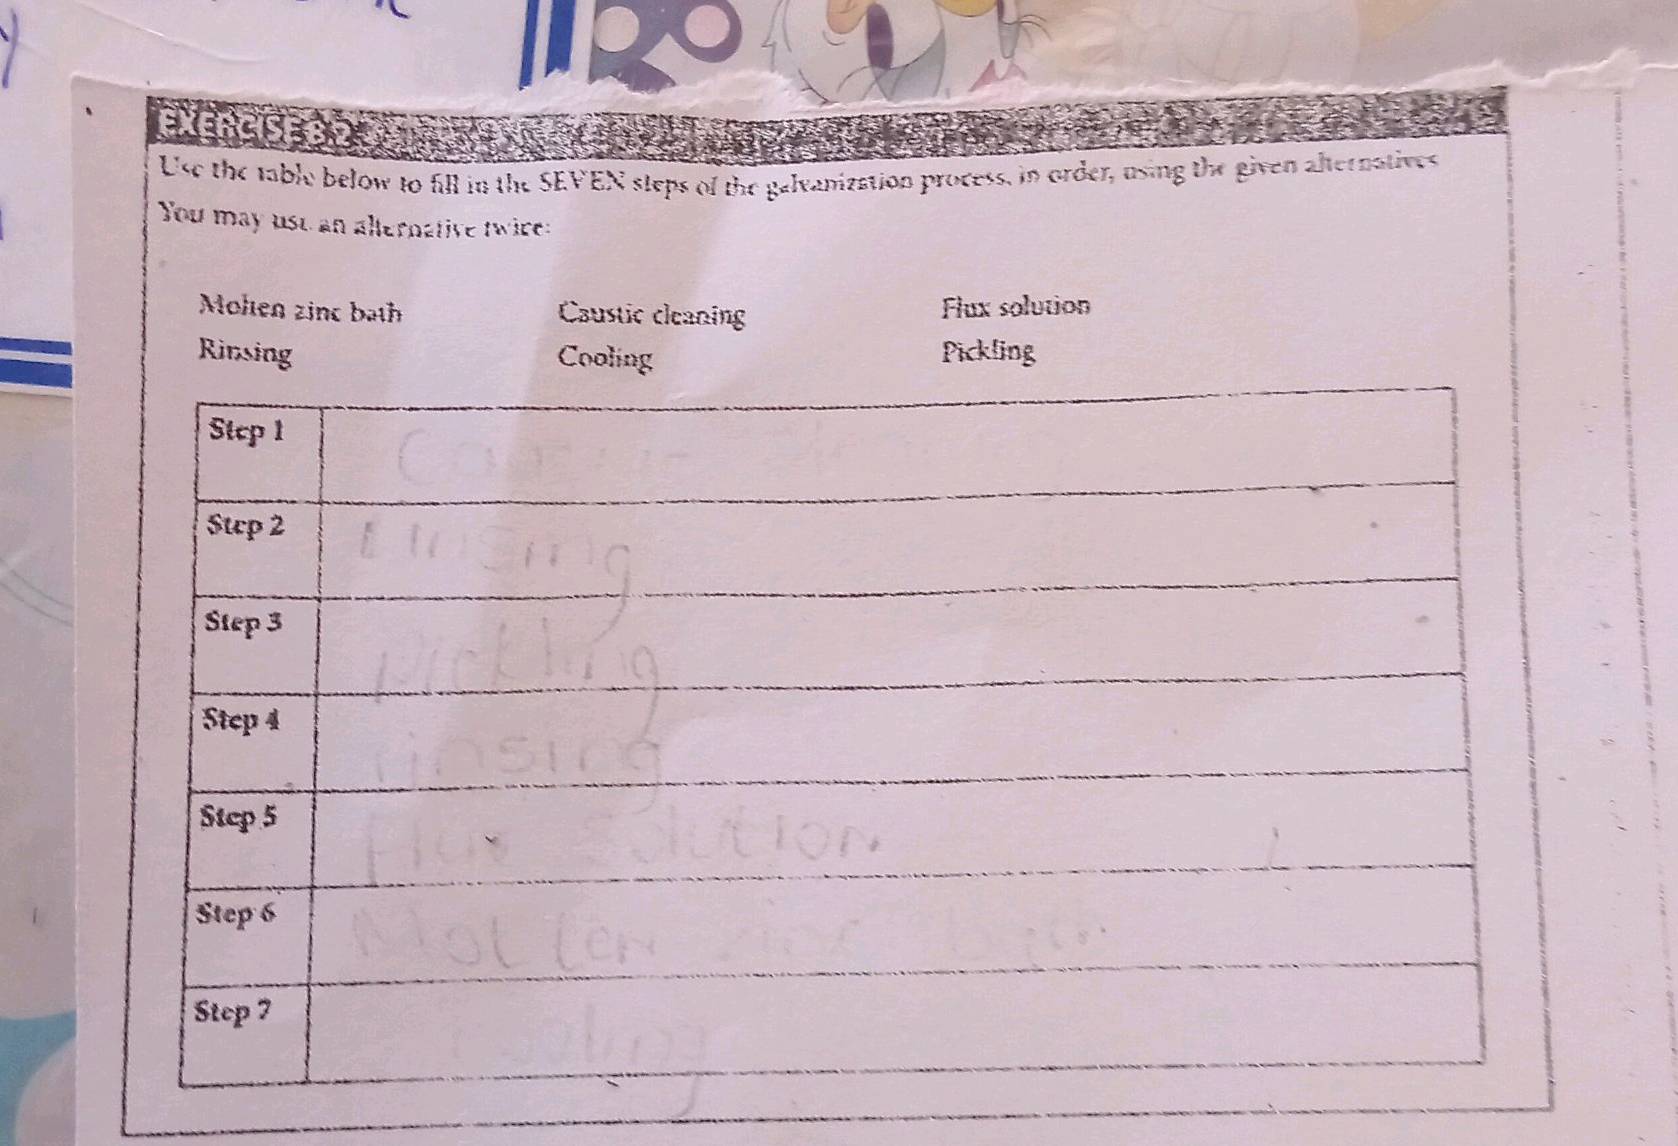 EXERCISE 8.2
Use the table below to fill in the SEVEN steps of the galvanization process, in order, using the given alternatives
You may use an alternative twice:
Molten zinc bath Caustic cleaning Flux solution
Rinsing Cooling Pickling
Step 1
Step 2 rinsing
Step 3 pickling
Step 4 rinsing
Step 5 flux solution
Step 6 Molten zinc bath
Step 7 cooling